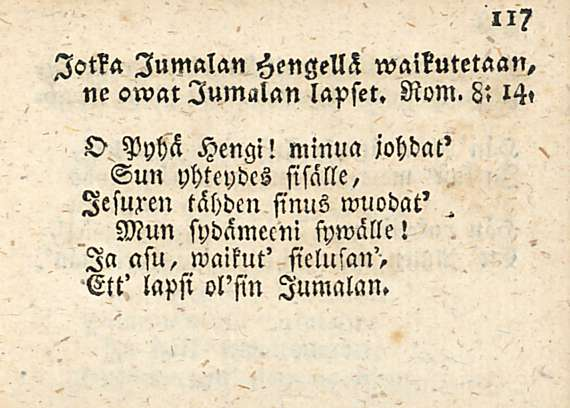 117
Jotka Jumalan Hengellä waikutetaan,
ne owat Jumalan lapset. Rom. 8: 14.
O Pyhä Hengi! minua johdat'
Sun yhteydes sisälle,
Jesuxen tähden sinus wuodat'
Mun sydämeeni sywälle!
Ja asu, waikut' sielusan',
Ett' lapsi ol'sin Jumalan.